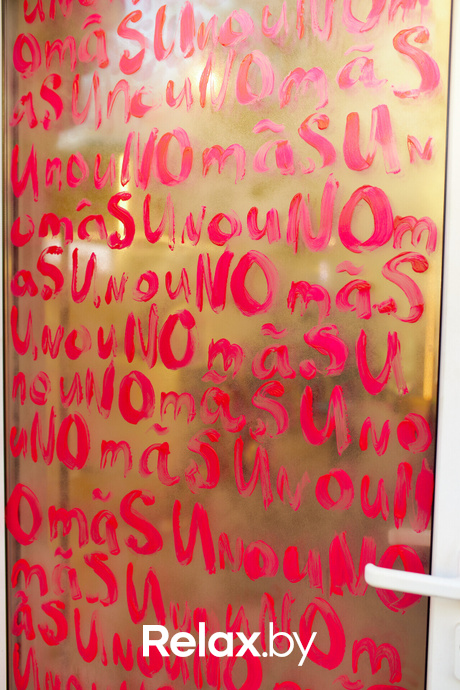 omãSUnouNOm
aSUnouNOmãS
UnouNOmãSUn
omãSUNouNOm
aSU.nouNOmã.S
U.NouNOmã.SU
nouNOmãSUno
uNOmãSUnouN
OmãSUnouNO
mãSUnouNOm
ãSU.nouNO
Relax.by